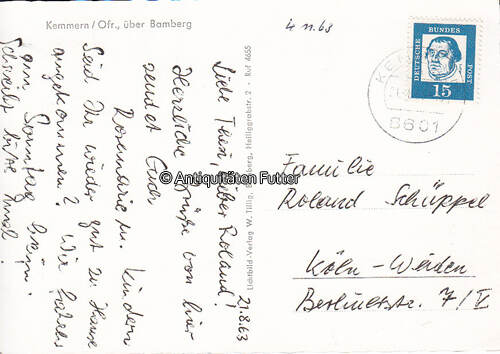 Kemmern/Ofr., über Bamberg
21.8.63
Liebe Thea, lieber Roland!
Herzliche Grüße von hier
sendet Euch
Rosemarie u. Kindern
Seid Ihr wieder gut zu Hause
angekommen? Wir fahren
am Sonntag heim.
Schreibt bitte mal!
© Antiquitäten Futter
Lichtbild-Verlag W. Tillig, Bamberg, Heiliggrabstr. 2 - Ruf 4655
4 n. 63
DEUTSCHE BUNDES POST
15
KEM
8601
Familie
Roland Schüppel
Köln-Weiden
Berlinerstr. 7/V